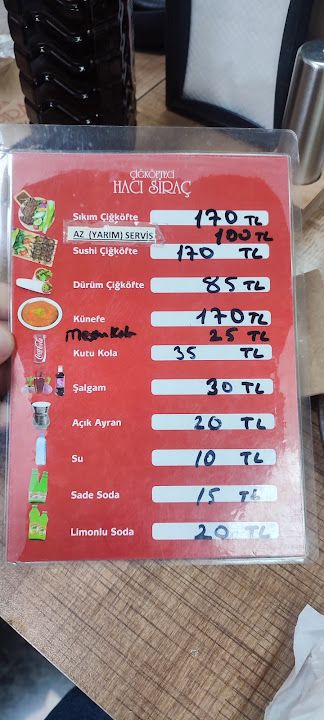 ÇİĞKÖFTECİ
HACI SIRAÇ
Sıkım Çiğköfte 170 TL
AZ (YARIM) SERVİS 100 TL
Sushi Çiğköfte 170 TL
Dürüm Çiğköfte 85 TL
Künefe 170 TL
Meşru Kola 25 TL
Kutu Kola 35 TL
Şalgam 30 TL
Açık Ayran 20 TL
Su 10 TL
Sade Soda 15 TL
Limonlu Soda 20 TL
Coca-Cola